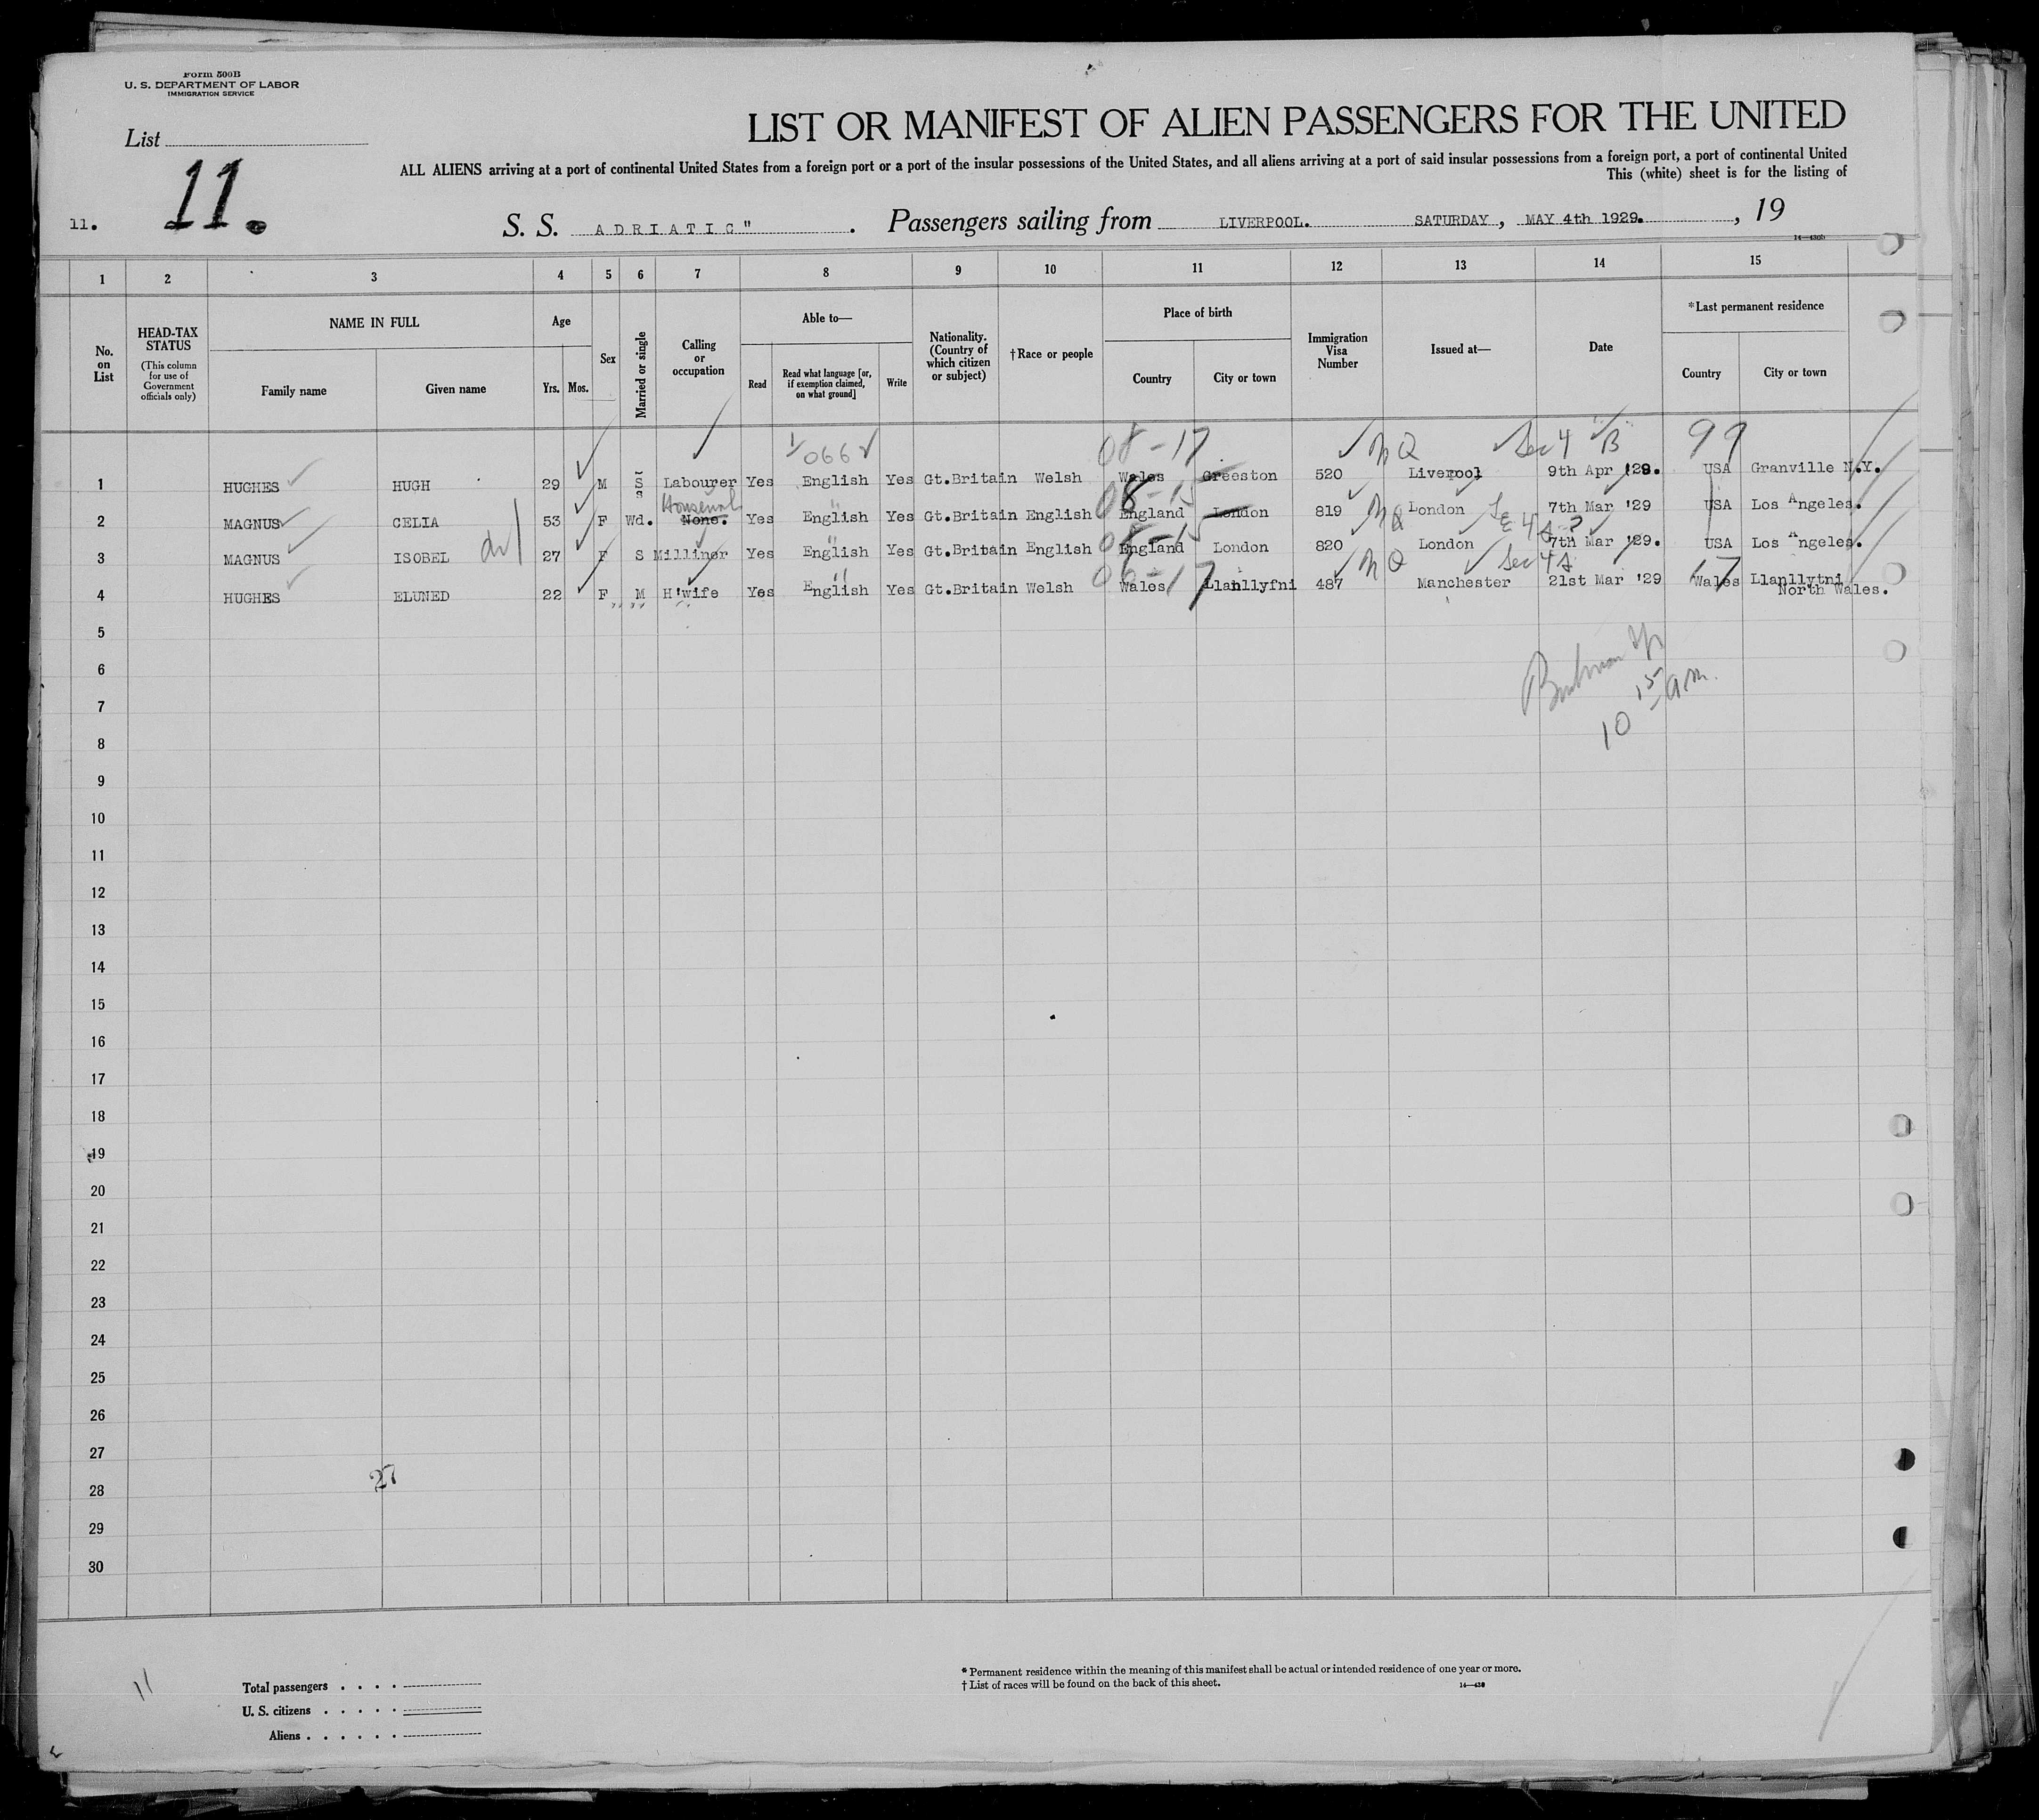 Form 500B
U. S. DEPARTMENT OF LABOR
IMMIGRATION SERVICE
List
11.
11.
LIST OR MANIFEST OF ALIEN PASSENGERS FOR THE UNITED
ALL ALIENS arriving at a port of continental United States from a foreign port or a port of the insular possessions of the United States, and all aliens arriving at a port of said insular possessions from a foreign port, a port of continental United
This (white) sheet is for the listing of
S. S. ADRIATIC" . Passengers sailing from LIVERPOOL. SATURDAY, MAY 4th 1929. , 19
14—430b
1 2 3 4 5 6 7 8 9 10 11 12 13 14 15
No. on List
HEAD-TAX STATUS
(This column for use of Government officials only)
NAME IN FULL
Family name Given name
Age
Yrs. Mos.
Sex
Married or single
Calling or occupation
Able to—
Read
Read what language [or, if exemption claimed, on what ground]
Write
Nationality. (Country of which citizen or subject)
†Race or people
Place of birth
Country City or town
Immigration Visa Number
Issued at—
Date
*Last permanent residence
Country City or town
0662 08-17 NQ Sec 4 B 99
1 HUGHES HUGH 29 M S Labourer Yes English Yes Gt.Britain Welsh Wales Greeston 520 Liverpool 9th Apr '29. USA Granville N.Y.
08-15
2 MAGNUS CELIA 53 F Wd. None. Yes English Yes Gt.Britain English England London 819 London 7th Mar '29 USA Los Angeles.
NQ 08-15
3 MAGNUS ISOBEL 27 F S Milliner Yes English Yes Gt.Britain English England London 820 London 7th Mar '29. USA Los Angeles.
NQ Sec 4 A 17
4 HUGHES ELUNED 22 F M H'wife Yes English Yes Gt.Britain Welsh Wales Llanllyfni 487 Manchester 21st Mar '29 Wales Llanllytni
North Wales.
5
6
7
10 15 a.m.
8
9
10
11
12
13
14
15
16
17
18
19
20
21
22
23
24
25
26
27
27
28
29
30
11
Total passengers . . . .
U. S. citizens . . . . .
Aliens . . . . . .
* Permanent residence within the meaning of this manifest shall be actual or intended residence of one year or more.
† List of races will be found on the back of this sheet.
14—430